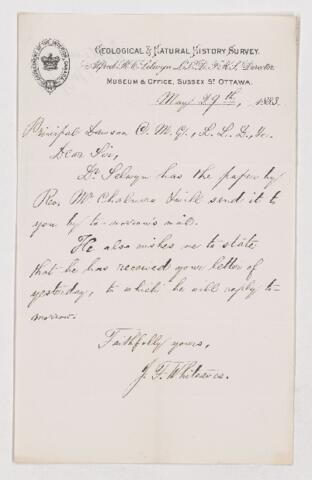 Geological & Natural History Survey.
Alfred R. C. Selwyn L.L.D. F.R.S. Director
Museum & Office, Sussex St Ottawa.
May 29th, 1883.
Principal Dawson C. M. G., L. L. D., &c.
Dear Sir,
Dr Selwyn has the paper by
Rev. Mr Chalmers & will send it to
you by to-morrow's mail.
He also wishes me to state
that he has received your letter of
yesterday, to which he will reply to-
morrow.
Faithfully yours,
J. F. Whiteaves.